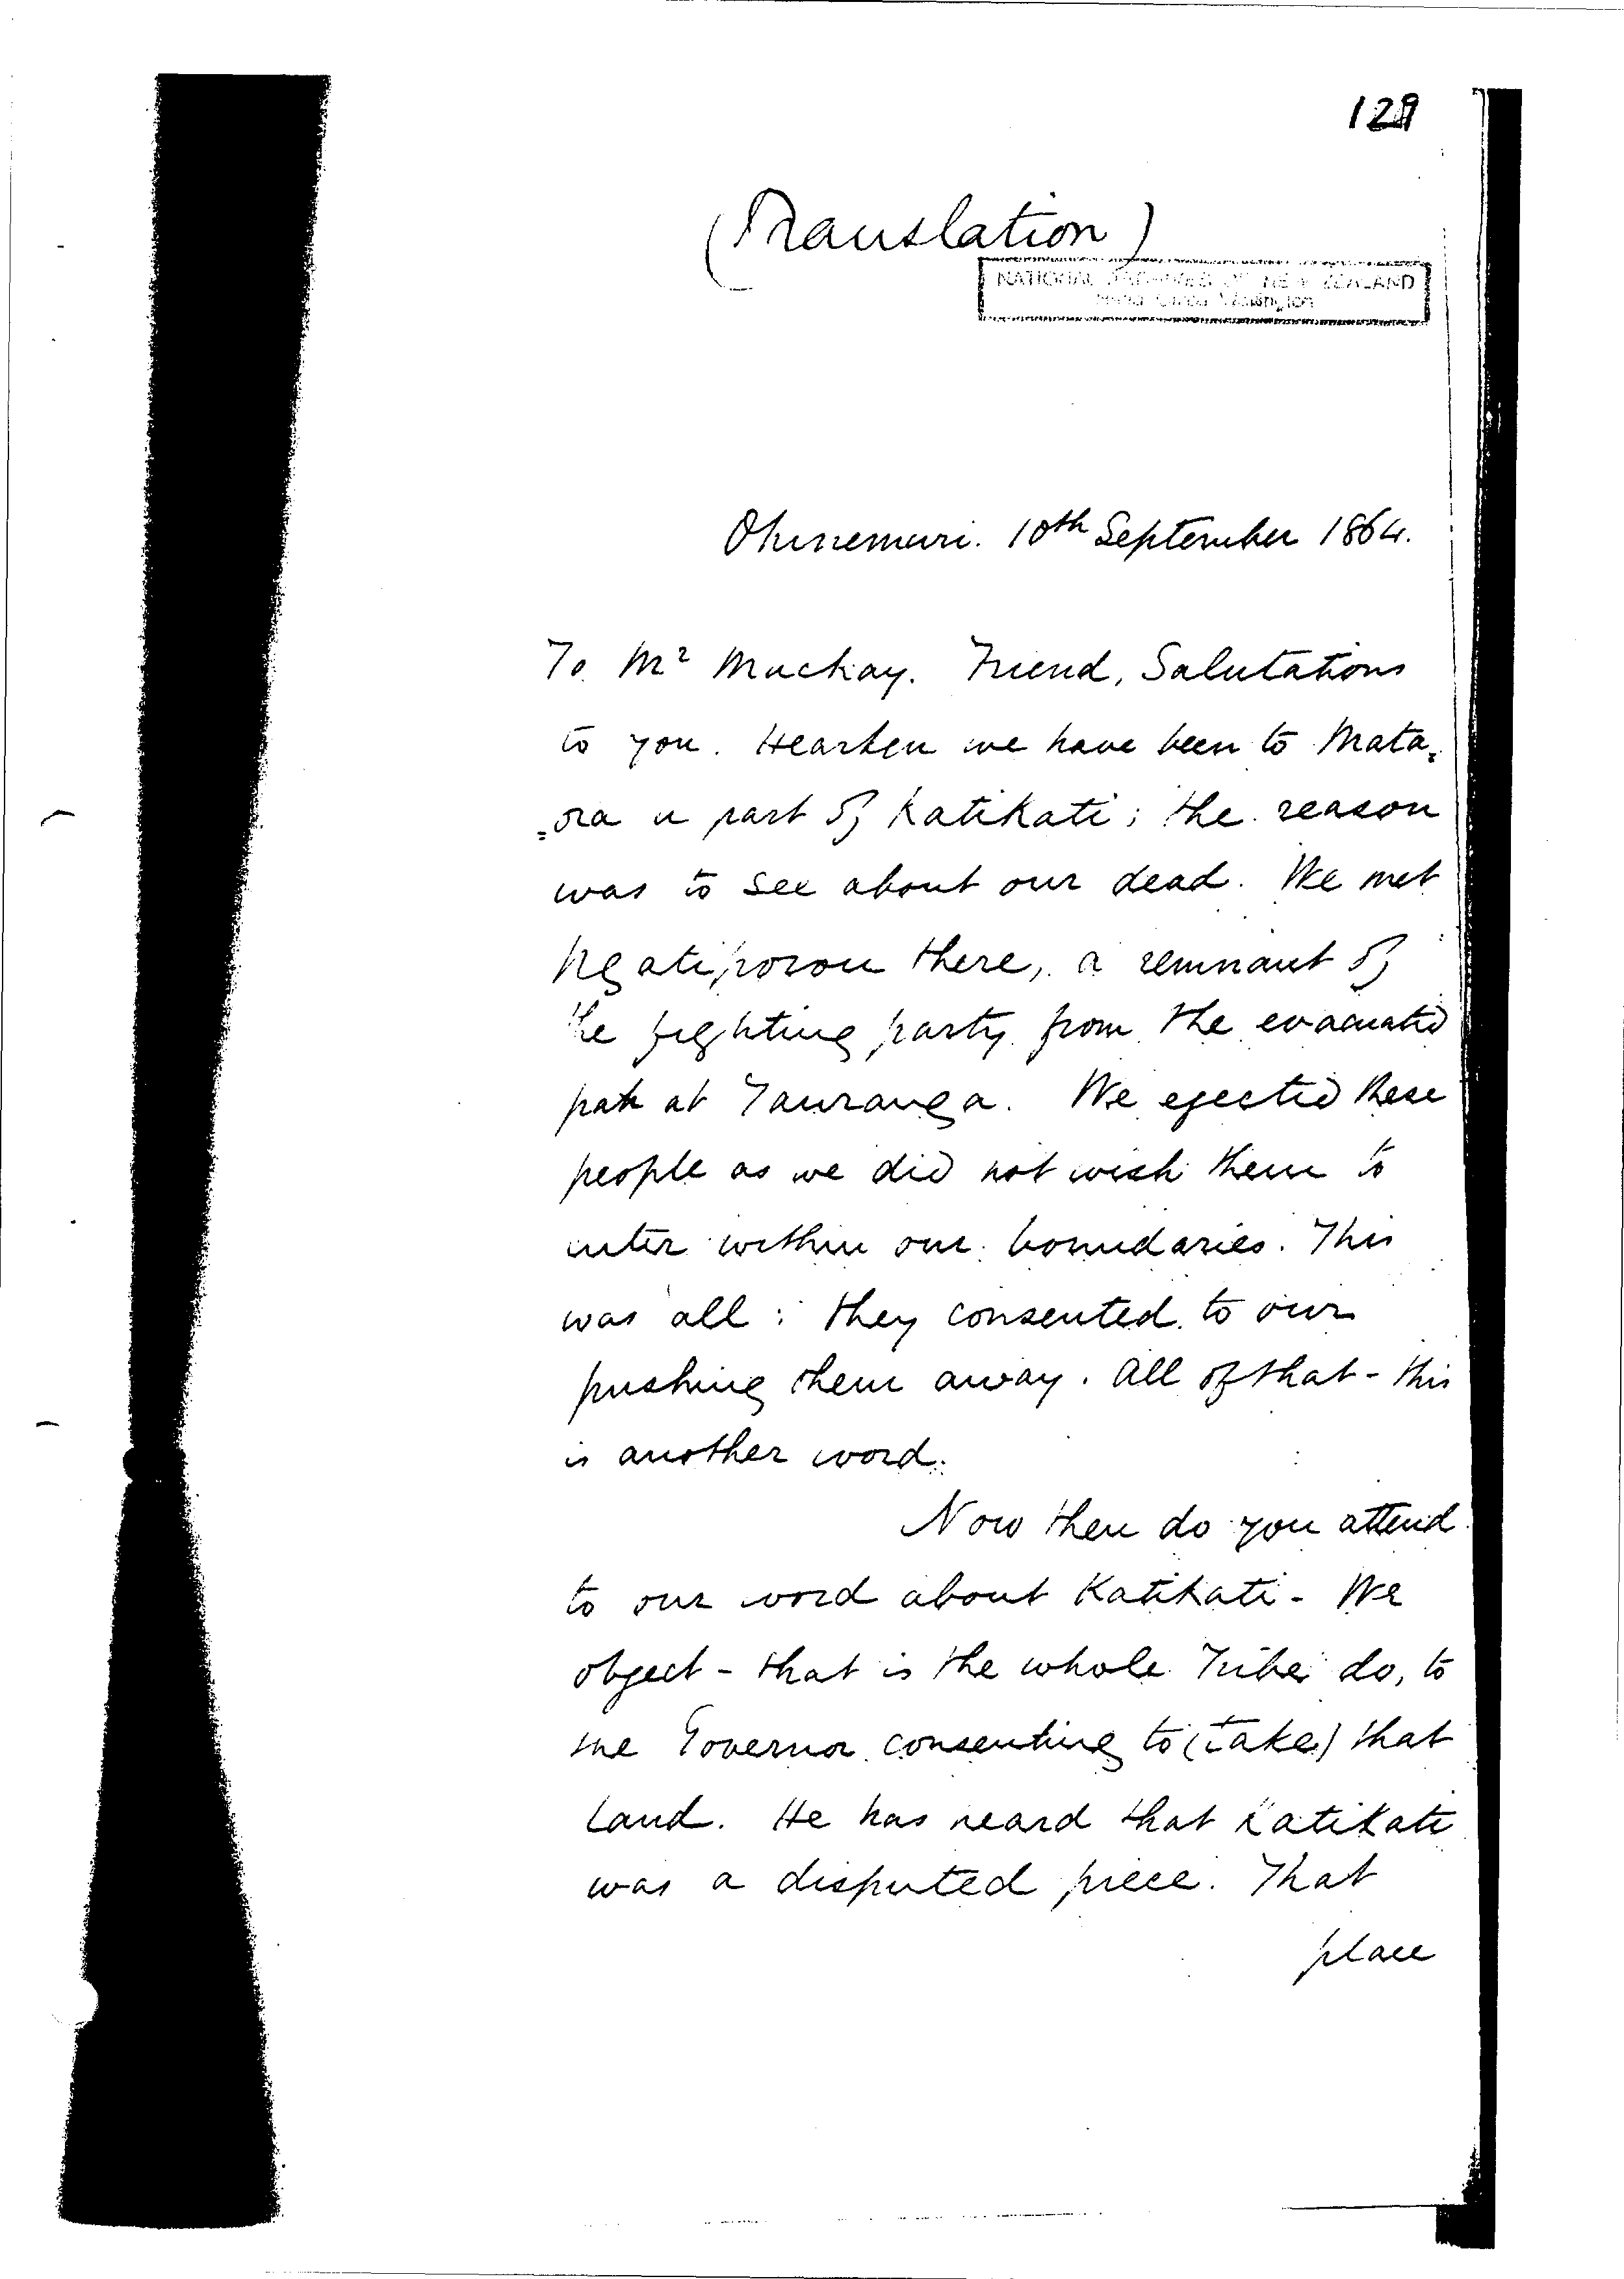 129
(Translation)
NATIONAL ARCHIVES OF NEW ZEALAND
Ohinemuri. 10th September 1864.
To Mr Mackay. Friend, Salutations
to you. Hearken we have been to Mata=
=ora a part of Katikati; the reason
was to see about our dead. We met
Ngatiporou there, a remnant of
the fighting party from the evacuated
pah at Tauranga. We ejected these
people as we did not wish them to
enter within our boundaries. This
was all: they consented to our
pushing them away. All of that - this
is another word.
Now then do you attend
to our word about Katikati - We
object - that is the whole Tribe do, to
the Governor consenting to (take) that
land. He has heard that Katikati
was a disputed piece. That
place